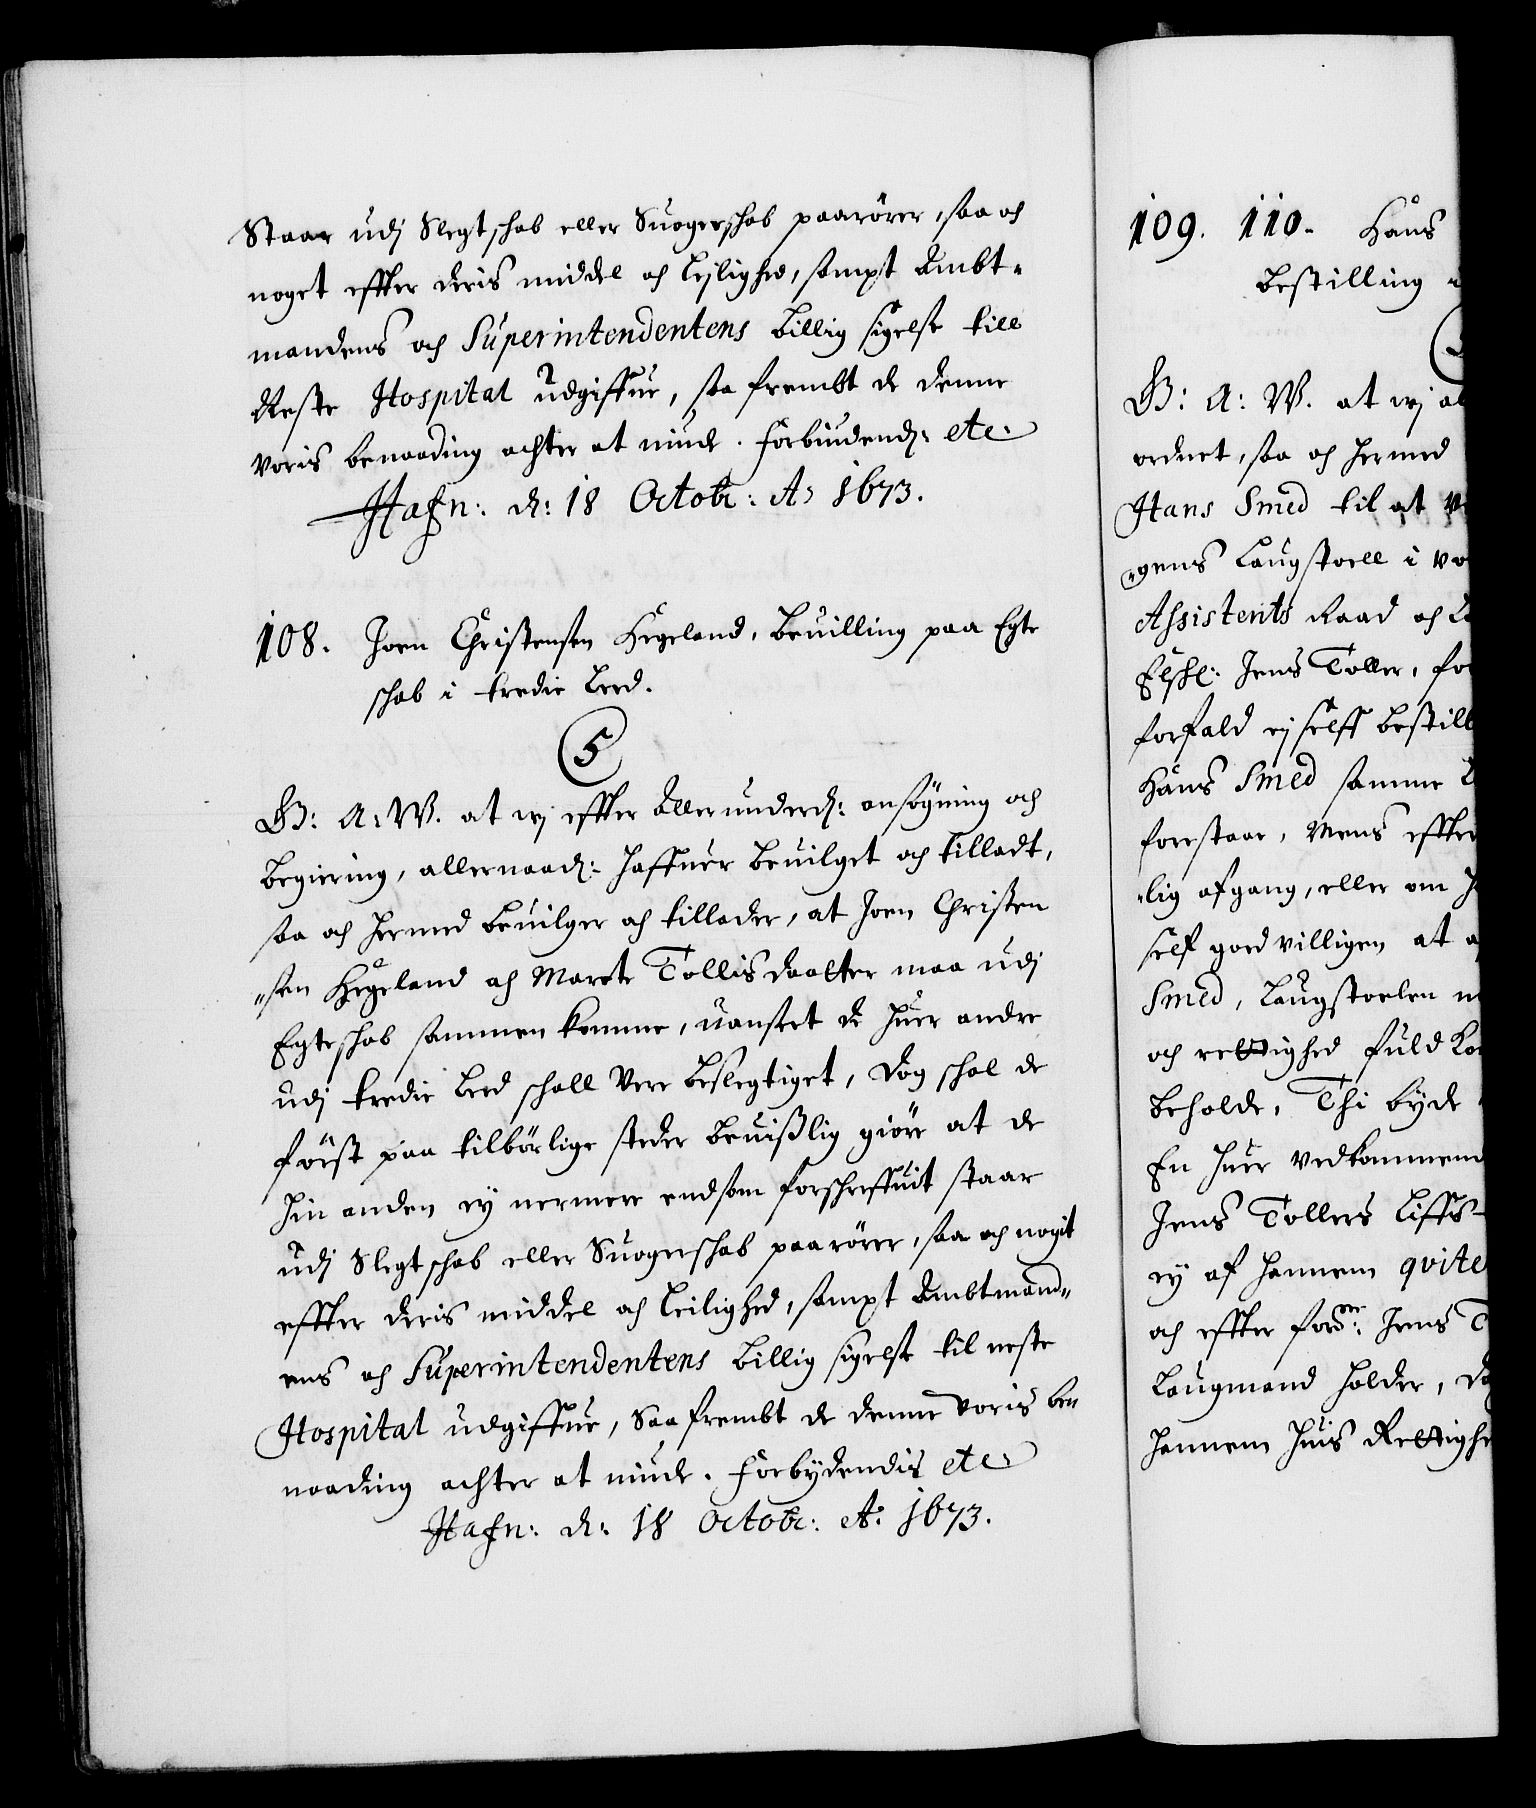 Staar udj Slegtschab eller Suogerschab paarörer, saa och
noget effter deris middel och lejlighed, sampt Ambt-
mandens och Superintendentens billig sigelse till
Neste Hospital udgiffue, saa frembt de denne
voris benaading achter at niude. Forbiudend: etc
Hafn: d: 18 Octobr: Ao 1673.
108. Joen Christensen Hegeland, beuilling paa Egte
schab i tredie Leed.
5
G: A: W. at wj effter Allerunderd: ansögning och
begiering, allernaad: haffuer beuilget och tilladt,
saa och hermed beuilger och tillader, at Joen Christen
"sen Hegeland och Marete Tollisdaatter maa udj
Egteschab sammen komme, uanseet de huer andre
udj tredie Leed schall vere beslegtiget, Dog schal de
först paa tilbörlige steder beuißlig giöre at de
hin anden ey nermere endsom forschreffuit staar
udj Slegtschab eller Suogerschab paarörer, saa och nogit
effter deris middel och leilighed, sampt Ambtmand"
ens och Superintendentens billig sigelse til neste
Hospital udgiffue, Saafrembt de denne voris be"
naading achter at niude. Forbydendis etc
Hafn: d: 18 Octobr: Ao: 1673.
109. 110. Hans
bestilling
G: A: W. at wj al
ordnet, saa och hermed
Hans Smed til at
"gens Laugstoell i vo
Assistents Raad och
Elskl: Jens Toller, for
forfald ej selff bestill
Hans Smed samme
forestaar, Mens effter
"lig afgang, eller om
self goedvilligen at
Smed, Laugstoelen
och rettighed fuldko
beholde, Thi byde
En huer vedkommen
Jens Tollers Liffs-
ey af hannem qvite
och effter fordne: Jens T
Laugmand holder, Do
hannem huis Rettighe